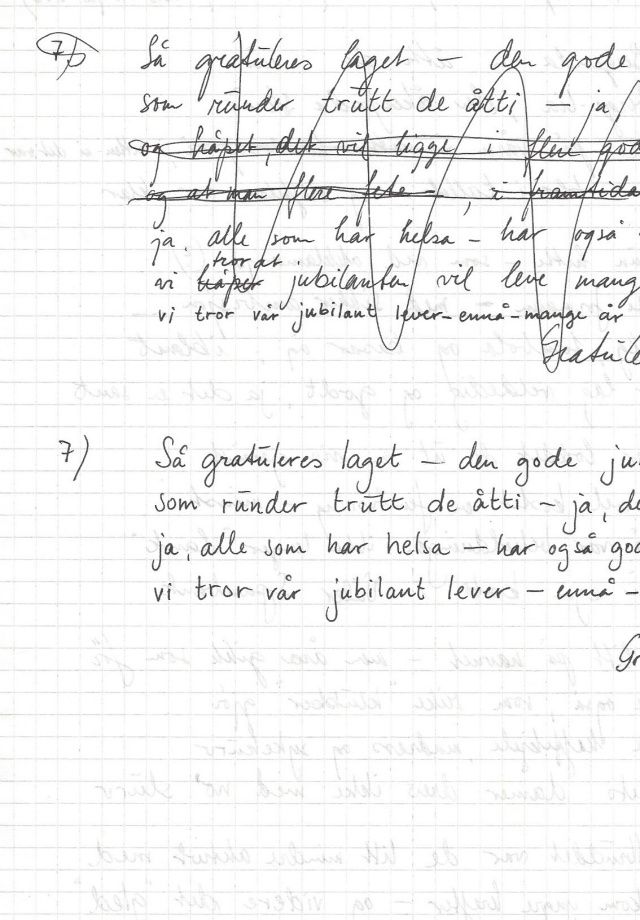 7)
Så gratūleres laget – den gode
som rūnder trūtt de åtti – ja
og håpet, det vil ligge i flere god
og at man flere fete – , i framtida
ja, alle som har helsa – har også
tror at
vi håper jubilanten vil leve mang
vi tror vår jubilant lever – ennå – mange år
Gratūle
7) Så gratūleres laget – den gode ju
som rūnder trūtt de åtti – ja, de
ja, alle som har helsa – har også god
vi tror vår jubilant lever – ennå –
Gr